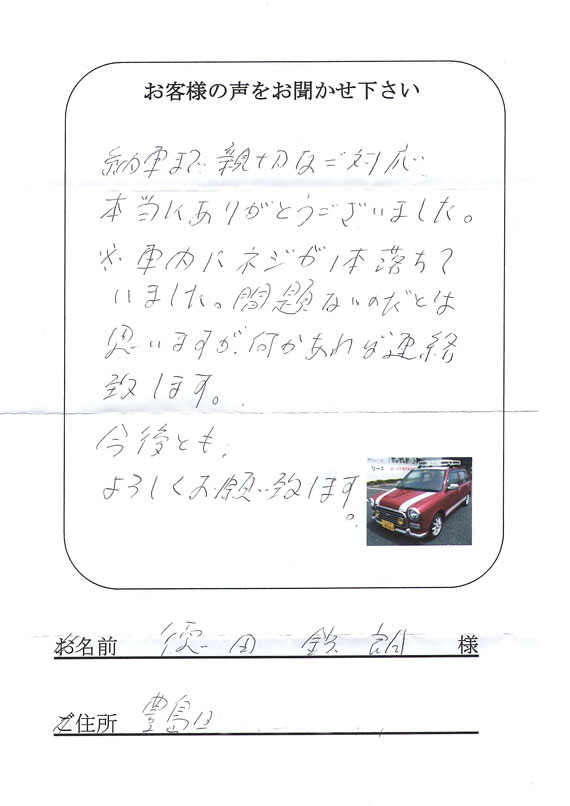 お客様の声をお聞かせ下さい
納車まで親切なご対応
本当にありがとうございました。
※車内にネジが1本落ちて
いました。問題ないのだとは
思いますが、何かあれば連絡
致します。
今後とも、
よろしくお願い致します。
リース
お名前 徳田 鉄朗 様
ご住所 豊島区